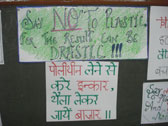 SAY NO To PLASTIC
FOR THE RESULT CAN BE
DRASTIC !!!
पोलीथीन लेने से
करे इन्कार,
थैला लेकर
जायें बाजार ।।